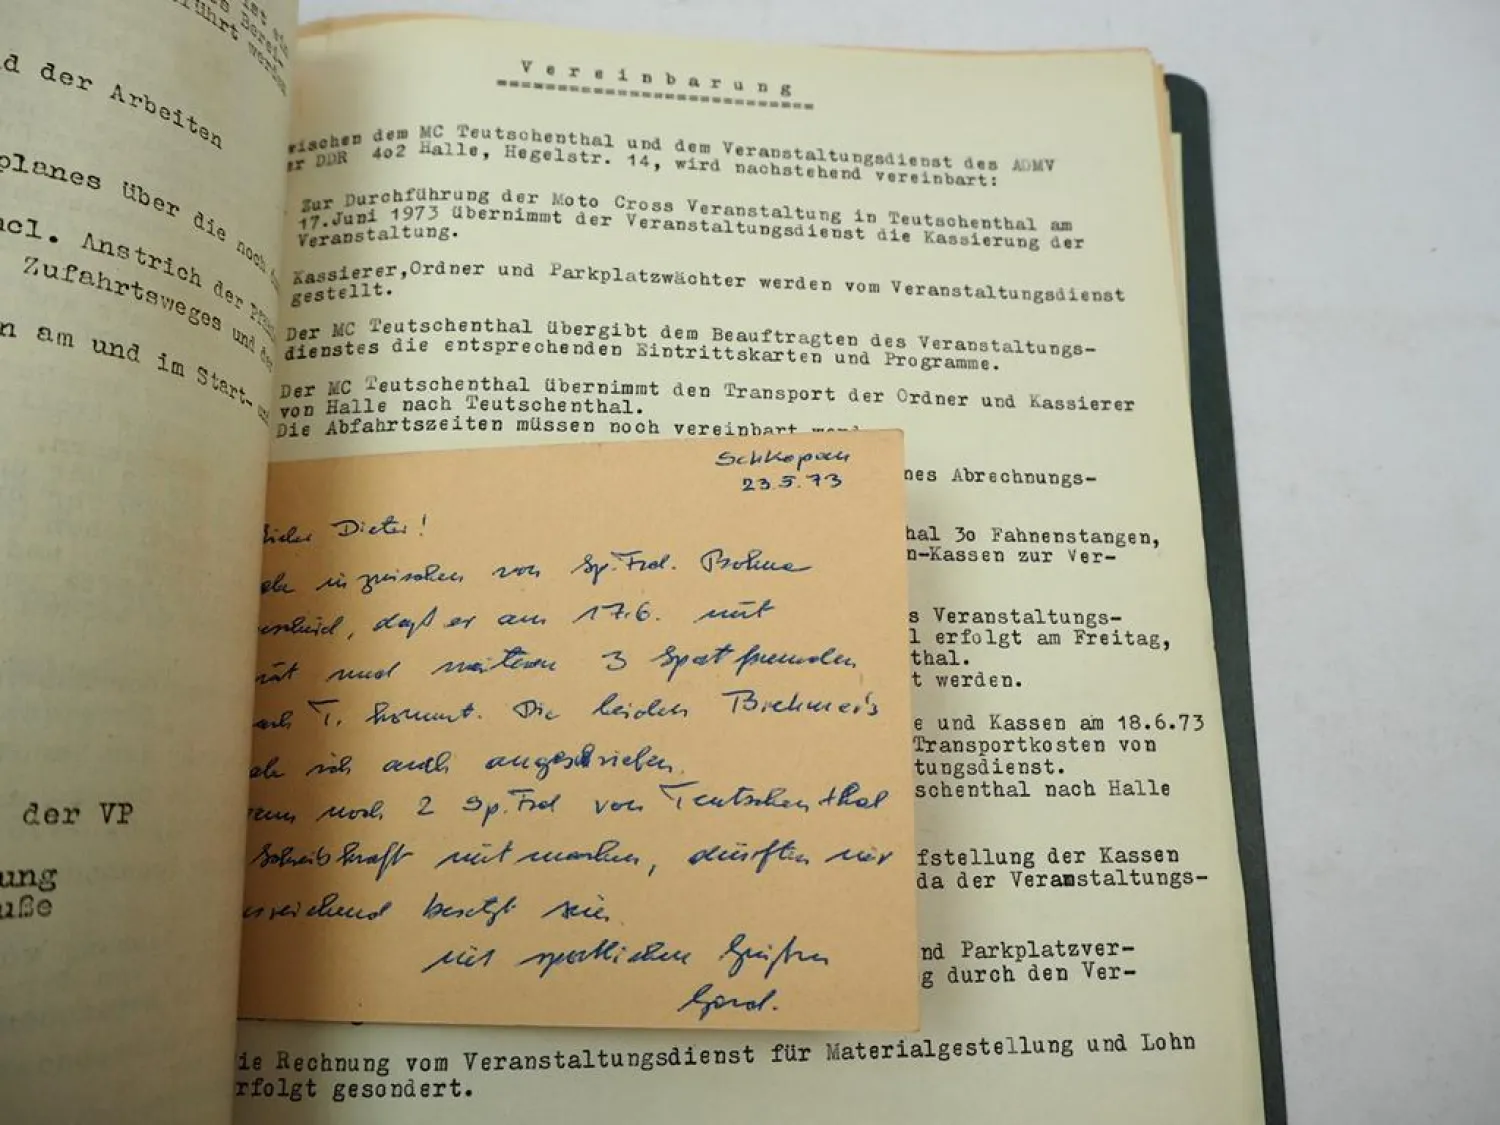 ist ein
Berei-
führt werden
d der Arbeiten
planes über die noch
ncl. Anstrich der
Zufahrtsweges und der
n am und im Start-
der VP
ung
uße
Vereinbarung
wischen dem MC Teutschenthal und dem Veranstaltungsdienst des ADMV
er DDR 4o2 Halle, Hegelstr. 14, wird nachstehend vereinbart:
Zur Durchführung der Moto Cross Veranstaltung in Teutschenthal am
17.Juni 1973 übernimmt der Veranstaltungsdienst die Kassierung der
Veranstaltung.
Kassierer,Ordner und Parkplatzwächter werden vom Veranstaltungsdienst
gestellt.
Der MC Teutschenthal übergibt dem Beauftragten des Veranstaltungs-
dienstes die entsprechenden Eintrittskarten und Programme.
Der MC Teutschenthal übernimmt den Transport der Ordner und Kassierer
von Halle nach Teutschenthal.
Die Abfahrtszeiten müssen noch vereinbart
nes Abrechnungs-
hal 3o Fahnenstangen,
n-Kassen zur Ver-
s Veranstaltungs-
l erfolgt am Freitag,
thal.
t werden.
e und Kassen am 18.6.73
Transportkosten von
tungsdienst.
schenthal nach Halle
fstellung der Kassen
da der Veranstaltungs-
nd Parkplatzver-
g durch den Ver-
Schkopau
23.5.73
Lieber Dieter!
abe inzwischen von Sp.Frd. Böhme
escheid, daß er am 17.6. mit
mit und weiteren 3 Sportfreunden
ach T. kommt. Die beiden Brehmer's
abe ich auch angeschrieben.
enn noch 2 Sp.Frd von Teutschenthal
Schreibkraft mitmachen, dürften wir
usreichend besetzt sein.
mit sportlichen Grüßen
Gerd.
ie Rechnung vom Veranstaltungsdienst für Materialgestellung und Lohn
rfolgt gesondert.